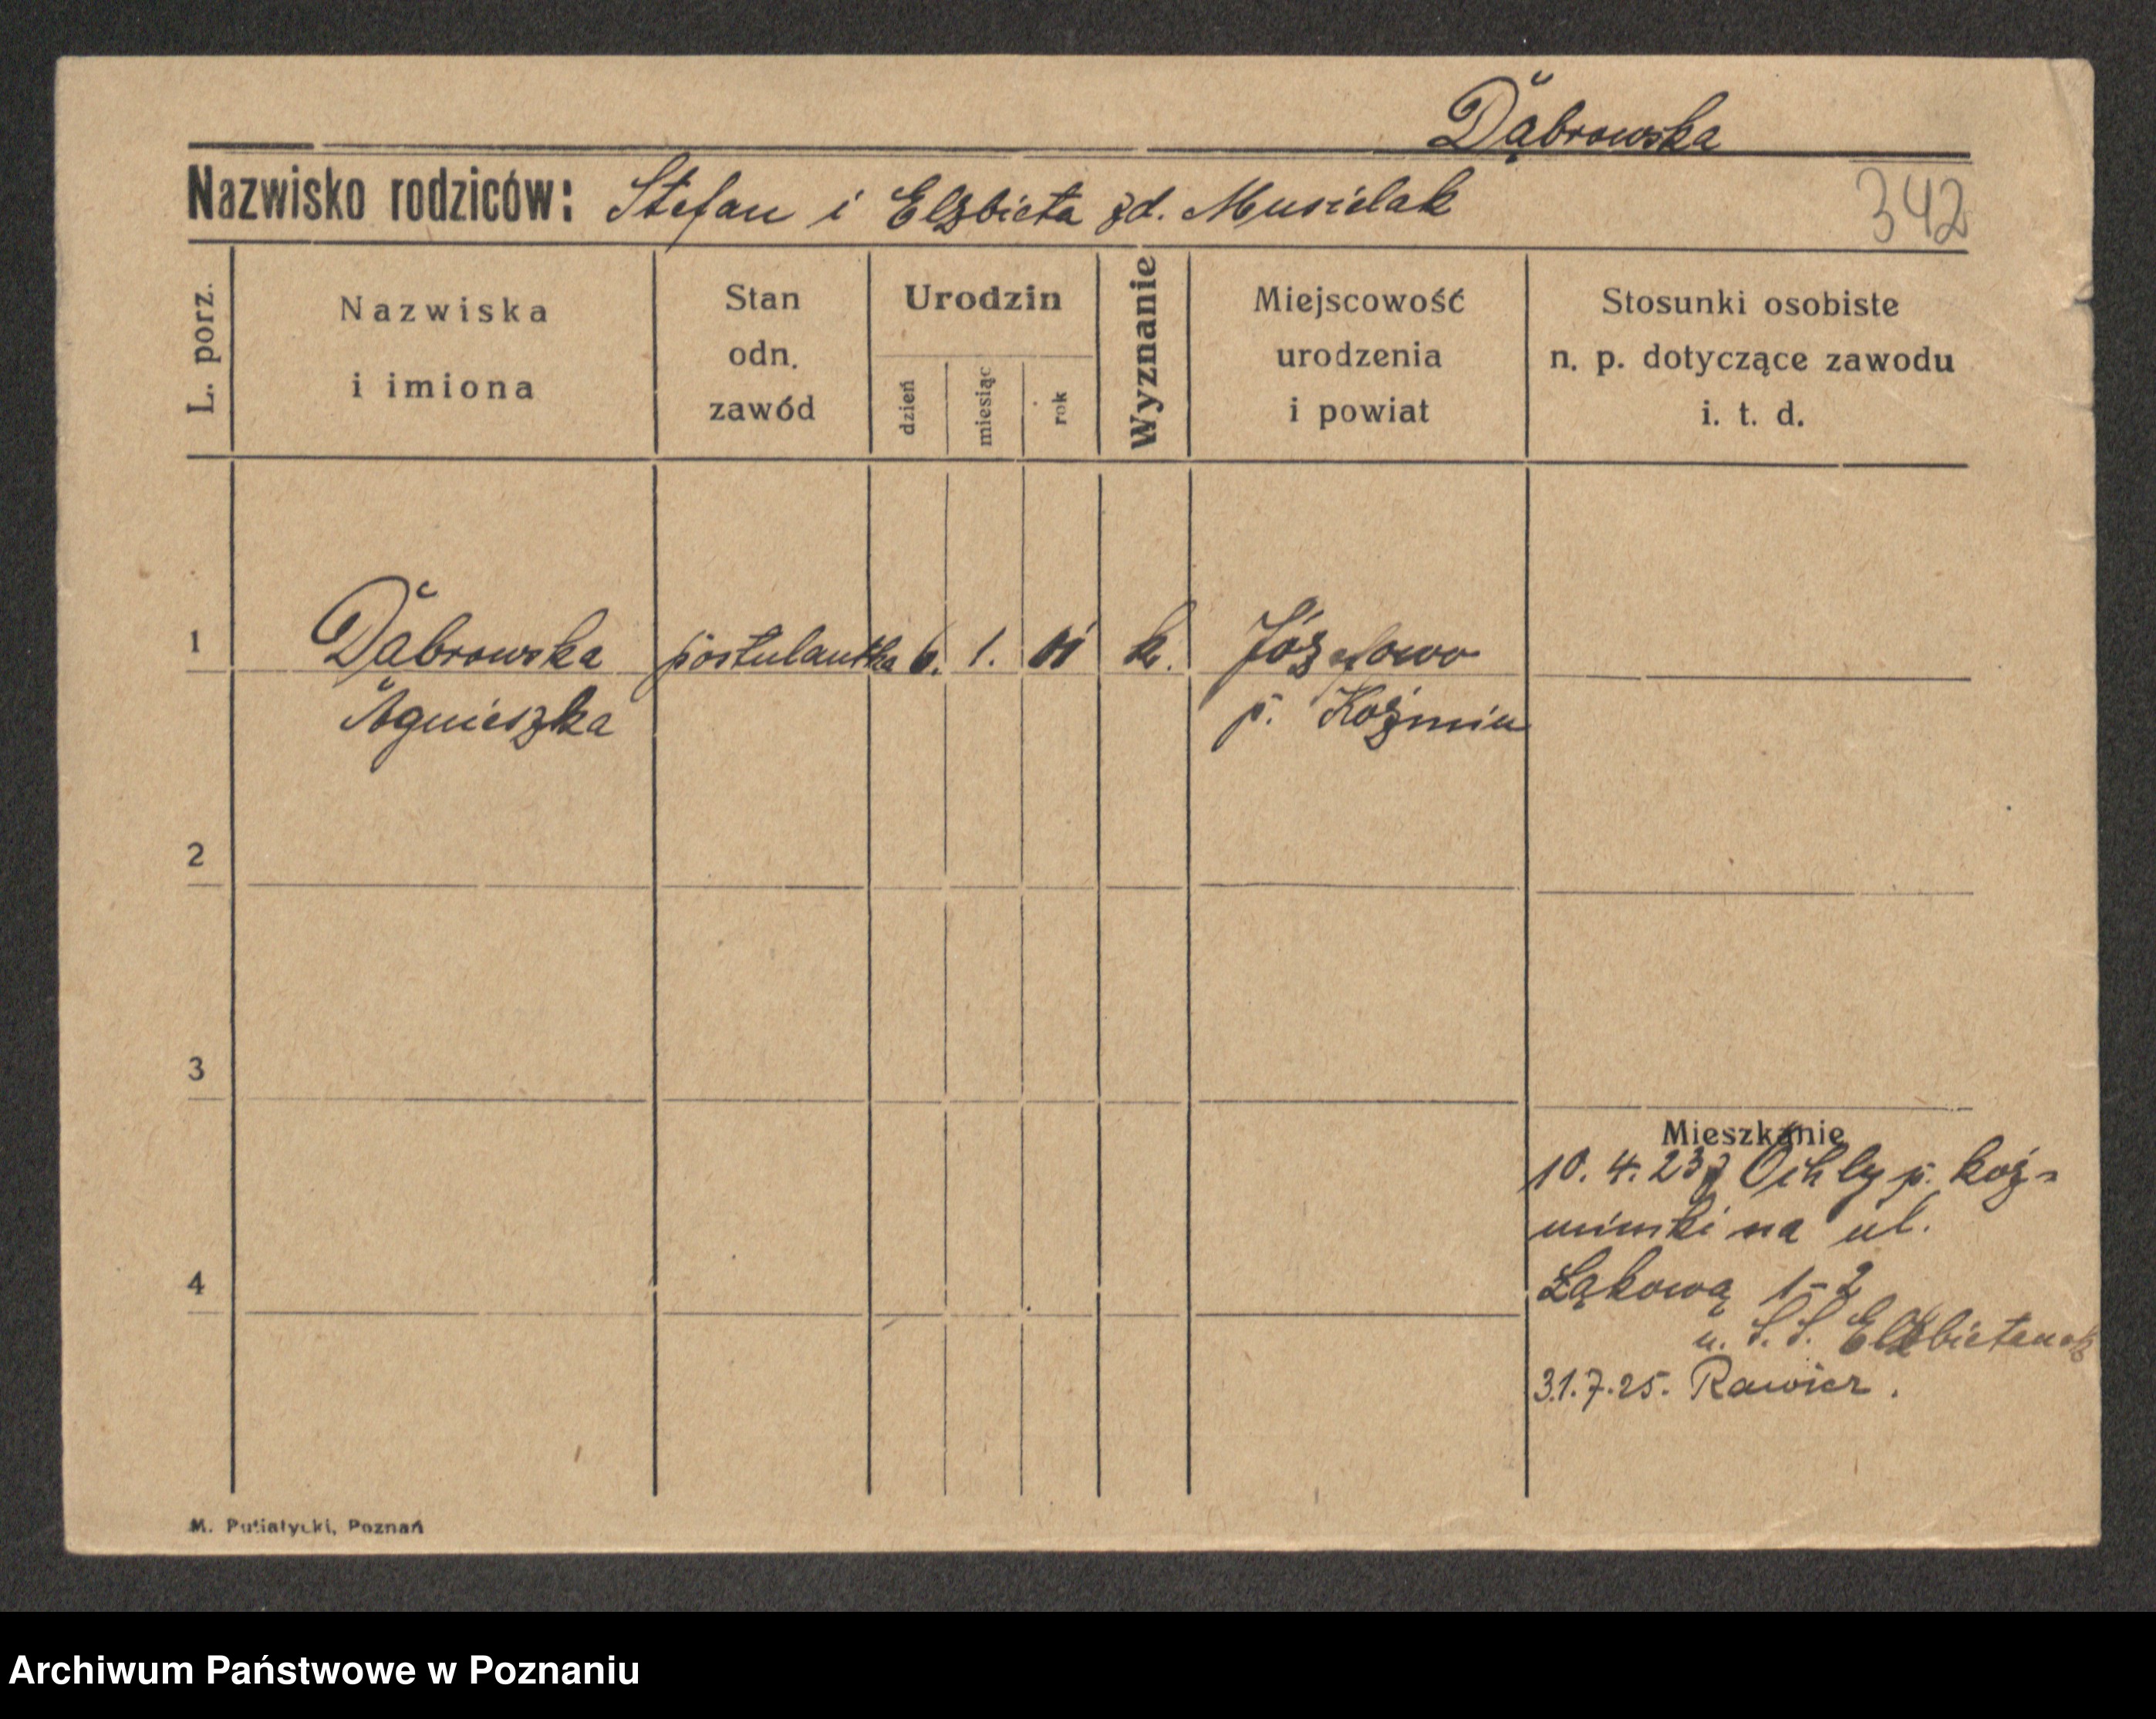 Dąbrowska
Nazwisko rodziców: Stefan i Elżbieta zd. Musielak
342
L. porz.
Nazwiska
i imiona
Stan
odn.
zawód
Urodzin
dzień
miesiąc
rok
Wyznanie
Miejscowość
urodzenia
i powiat
Stosunki osobiste
n. p. dotyczące zawodu
i. t. d.
1 Dąbrowska postulantka 6. 1. 01 k. Józefowo
Agnieszka p. Koźmin
2
3
Mieszkanie
10. 4. 23 z p. koź-
miński na ul.
4
Łąkową 1-2
u. S. S. Elżbietanek
31.7.25. Rawicz.
M. Putiatycki, Poznań
Archiwum Państwowe w Poznaniu